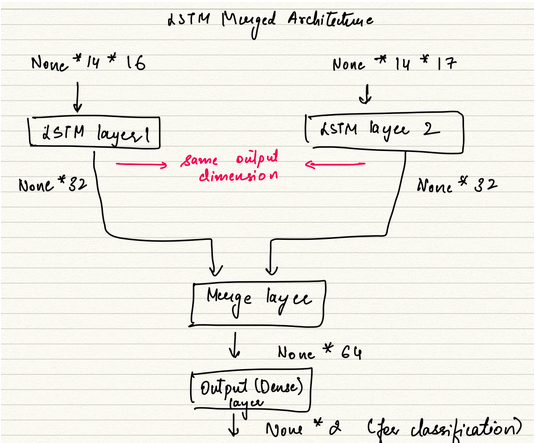 LSTM Merged Architecture
None * 14 * 16
None * 14 * 17
LSTM layer 1
LSTM layer 2
same output
dimension
None * 32
None * 32
Merge layer
None * 64
Output (Dense)
layer
None * 2 (for classification)